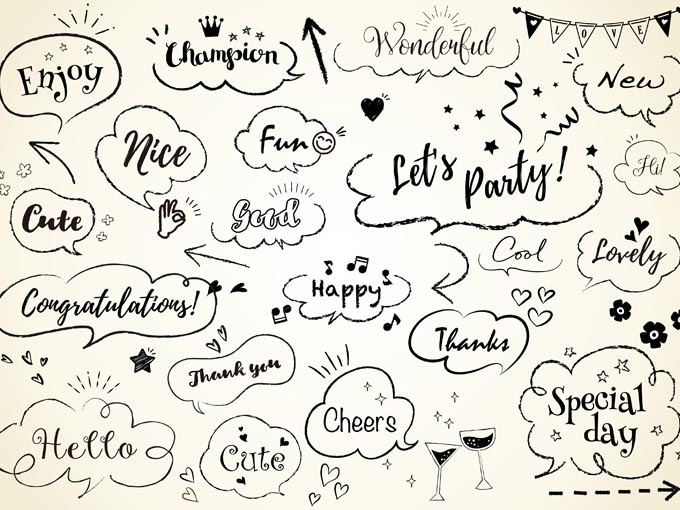 LOVE
Enjoy
Champion
Wonderful
New
Nice
Fun
Let's Party!
Hi!
Cute
Good
Cool
Lovely
Congratulations!
Happy
Thanks
Thank you
Hello
Cute
Cheers
Special
day